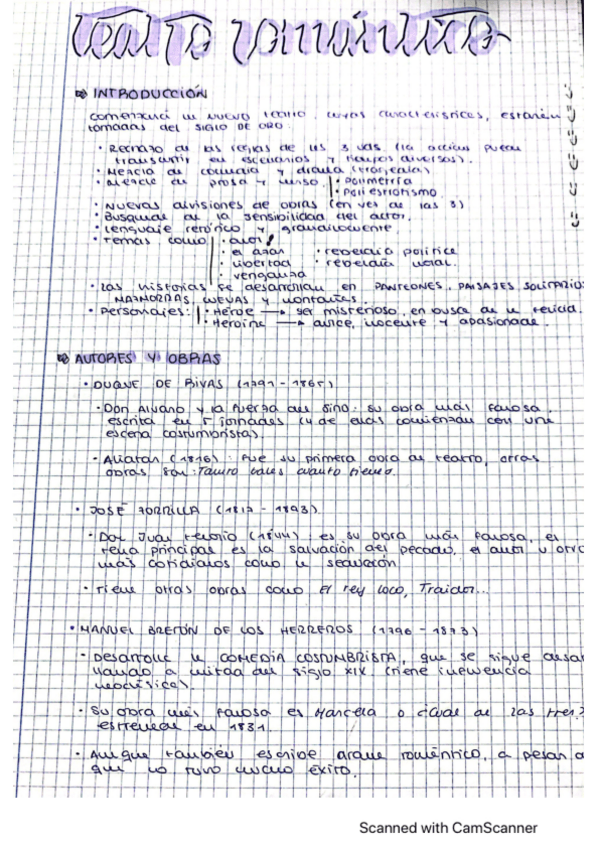 Teatro romántico
INTRODUCCIÓN
Comenzará un nuevo teatro, cuyas características, estarán
tomadas del SIGLO DE ORO.
• Rechazo de las reglas de las 3 uds. (la acción puede
transcurrir en escenarios y tiempos diversos).
• Mezcla de comedia y drama
• Mezcle de prosa y verso • Polimetría
• Poliestrofismo
• Nuevas divisiones de obras (en vez de las 3)
• Búsqueda de la sensibilidad del
• Lenguaje retórico y grandilocuente
• Temas como • amor
• el azar • rebeldía política
• libertad • rebeldía social.
• venganza
• Las historias se desarrollan en PANTEONES, PAISAJES SOLITARIOS
MAZMORRAS, cuevas y montañes.
• Personajes: • Héroe → ser misterioso, en busca de la felicid.
• Heroine → dulce, inocente y apasionada.
AUTORES Y OBRAS
• DUQUE DE RIVAS (1791 - 1865)
• Don Alvaro y la fuerza del sino: su obra más famosa,
escrita en 5 jornades (4 de ellas comienzan con una
escena costumbrista).
• Aliatar (1816): Fue su primera obra de teatro, otras
obras son: Tanto vales cuanto tienes.
• JOSÉ ZORRILLA (1817 - 1893)
• Don Juan Tenorio (1844): es su obra más famosa, el
tema principal es la salvación del pecado, el amor u otro
más cotidianos como la seducción
• Tiene otras obras como El rey loco, Traidor...
• MANUEL BRETÓN DE LOS HERREROS (1796 - 1873)
• Desarrolle la COMEDIA COSTUMBRISTA, que se sigue desar
llando a mitad del siglo XIX (tiene influencia
neoclásicas).
• Su obra más famosa es Marcela o ¿cuál de las tres?
estrenada en 1831.
• Aunque también escribe drama romántico, a pesar d
que no tuvo mucho éxito.
Scanned with CamScanner